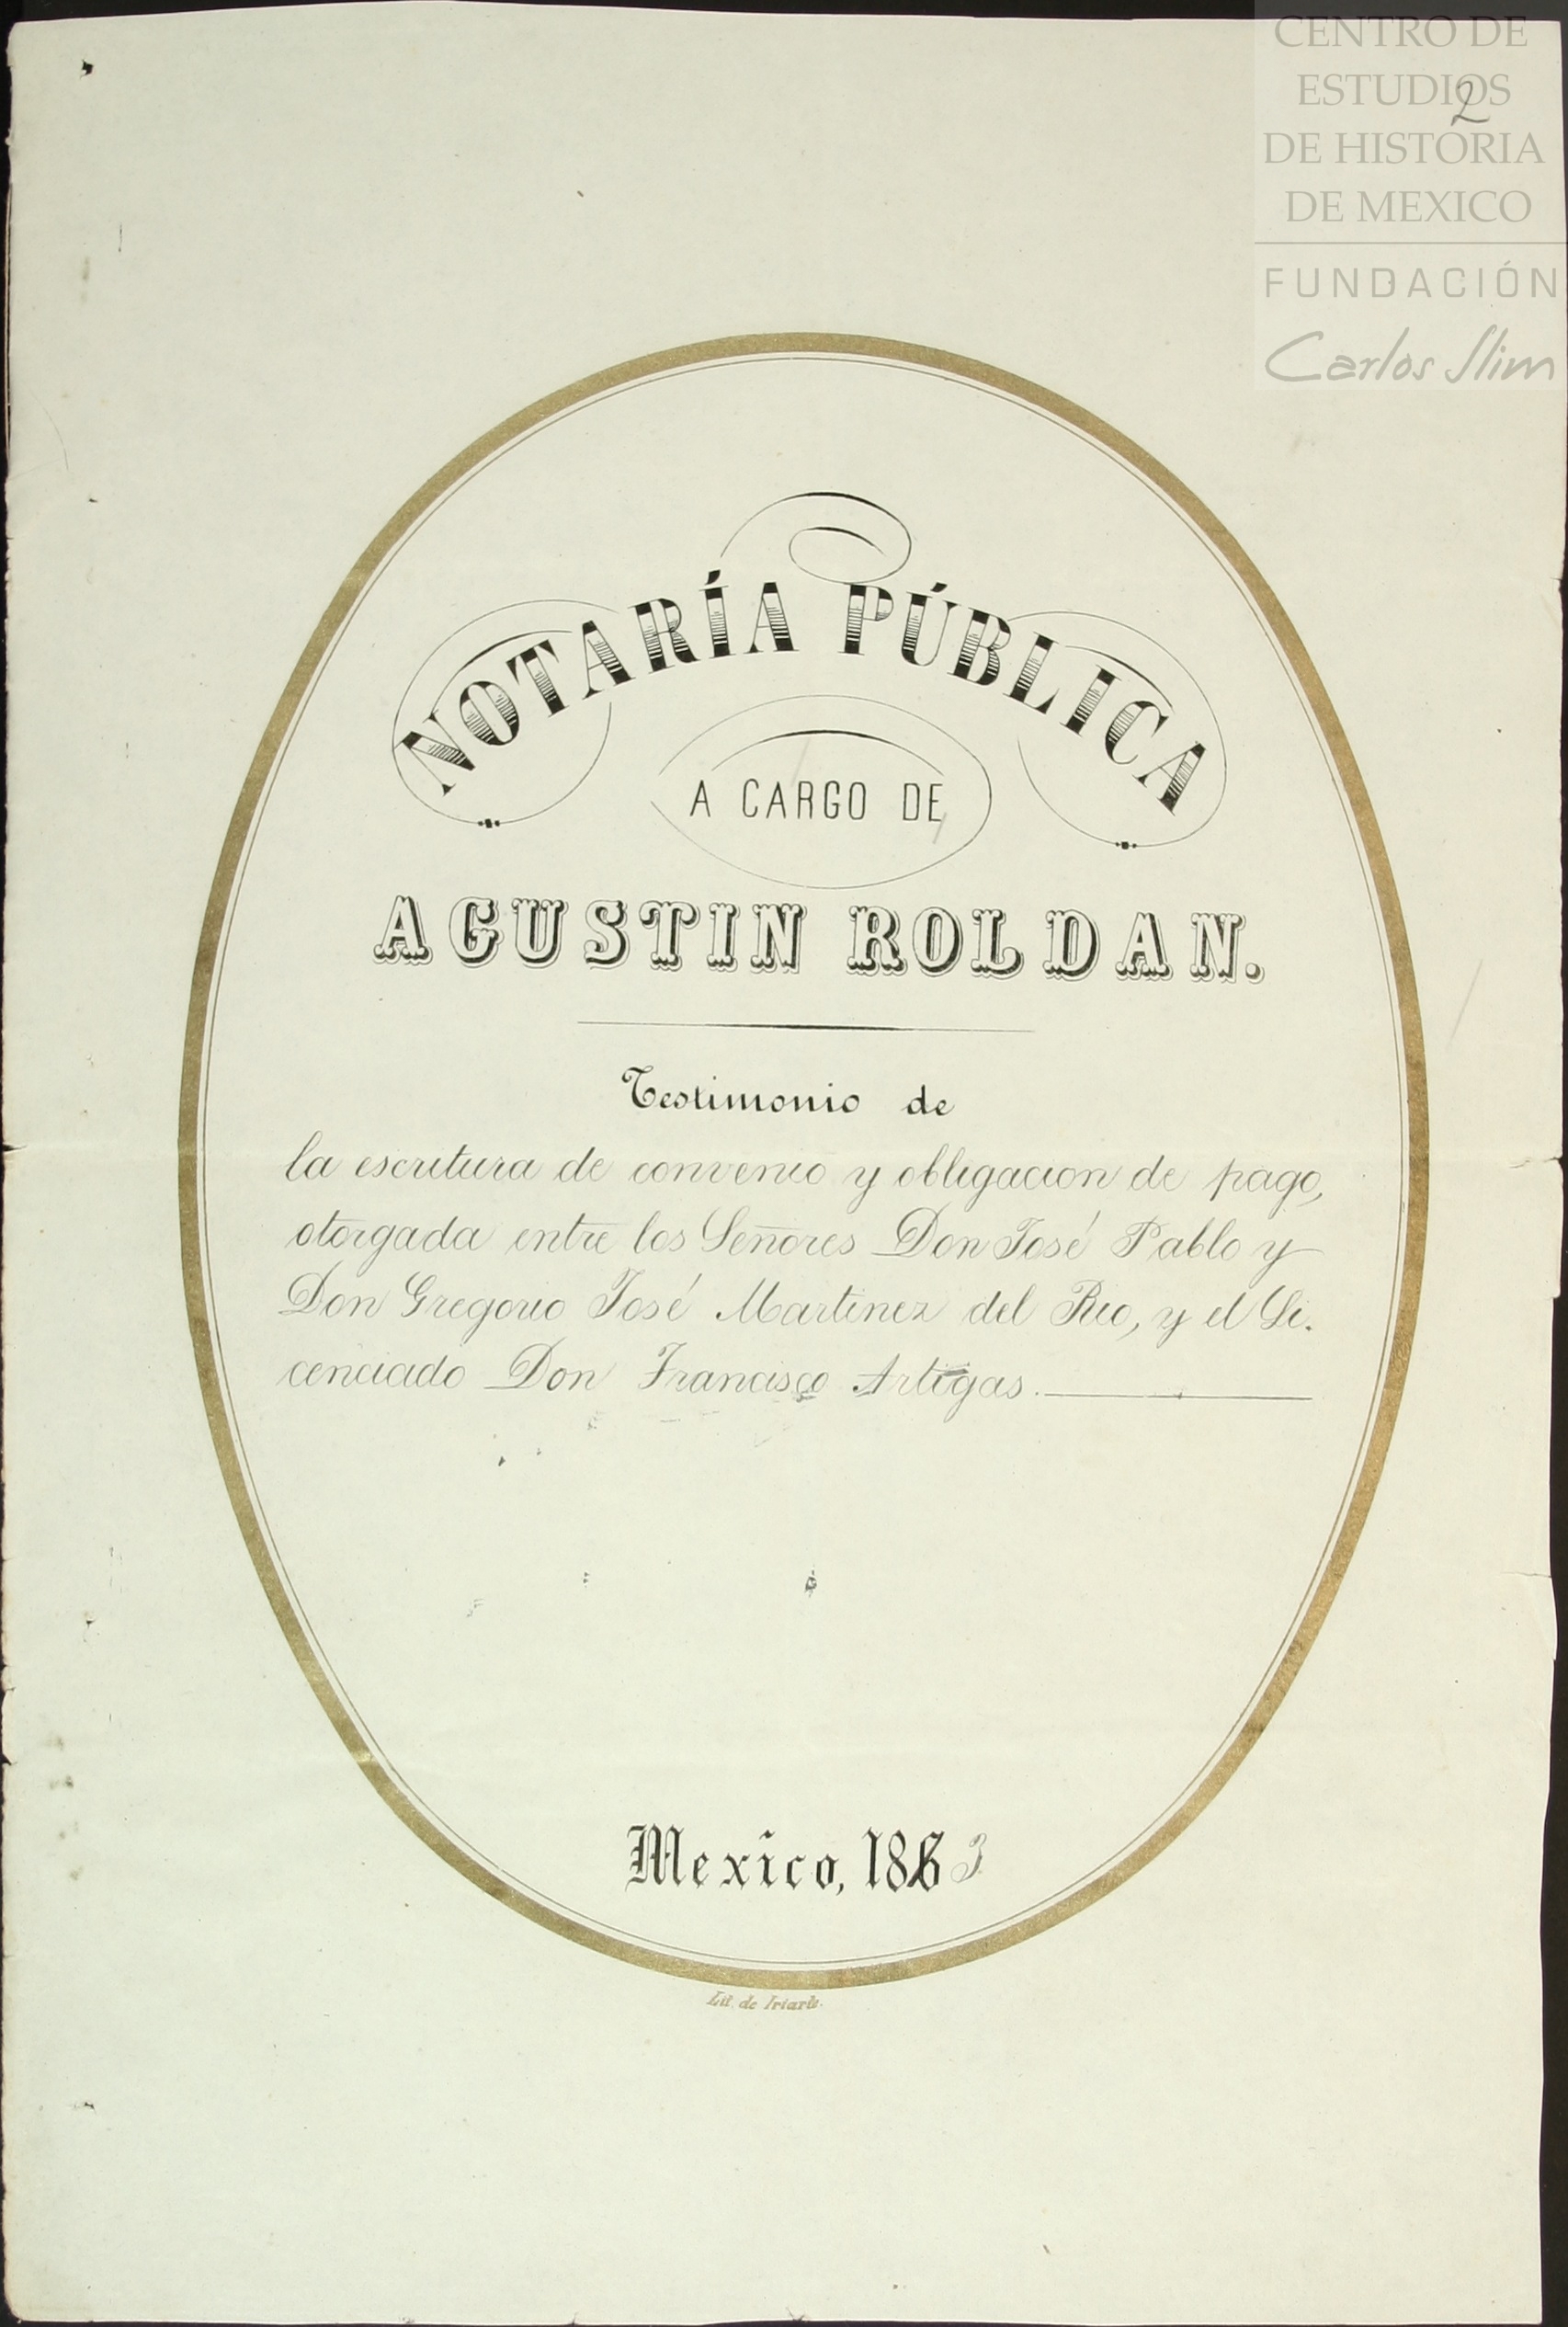 CENTRO DE
ESTUDIOS
2
DE HISTORIA
DE MEXICO
FUNDACIÓN
Carlos Slim
NOTARÍA PÚBLICA
A CARGO DE
AGUSTIN ROLDAN.
Testimonio de
la escritura de convenio y obligacion de pago,
otorgada entre los Señores Don José Pablo y
Don Gregorio José Martinez del Rio, y el Li.
cenciado Don Francisco Artigas.
Mexico, 1863
Lit. de Iriarte.